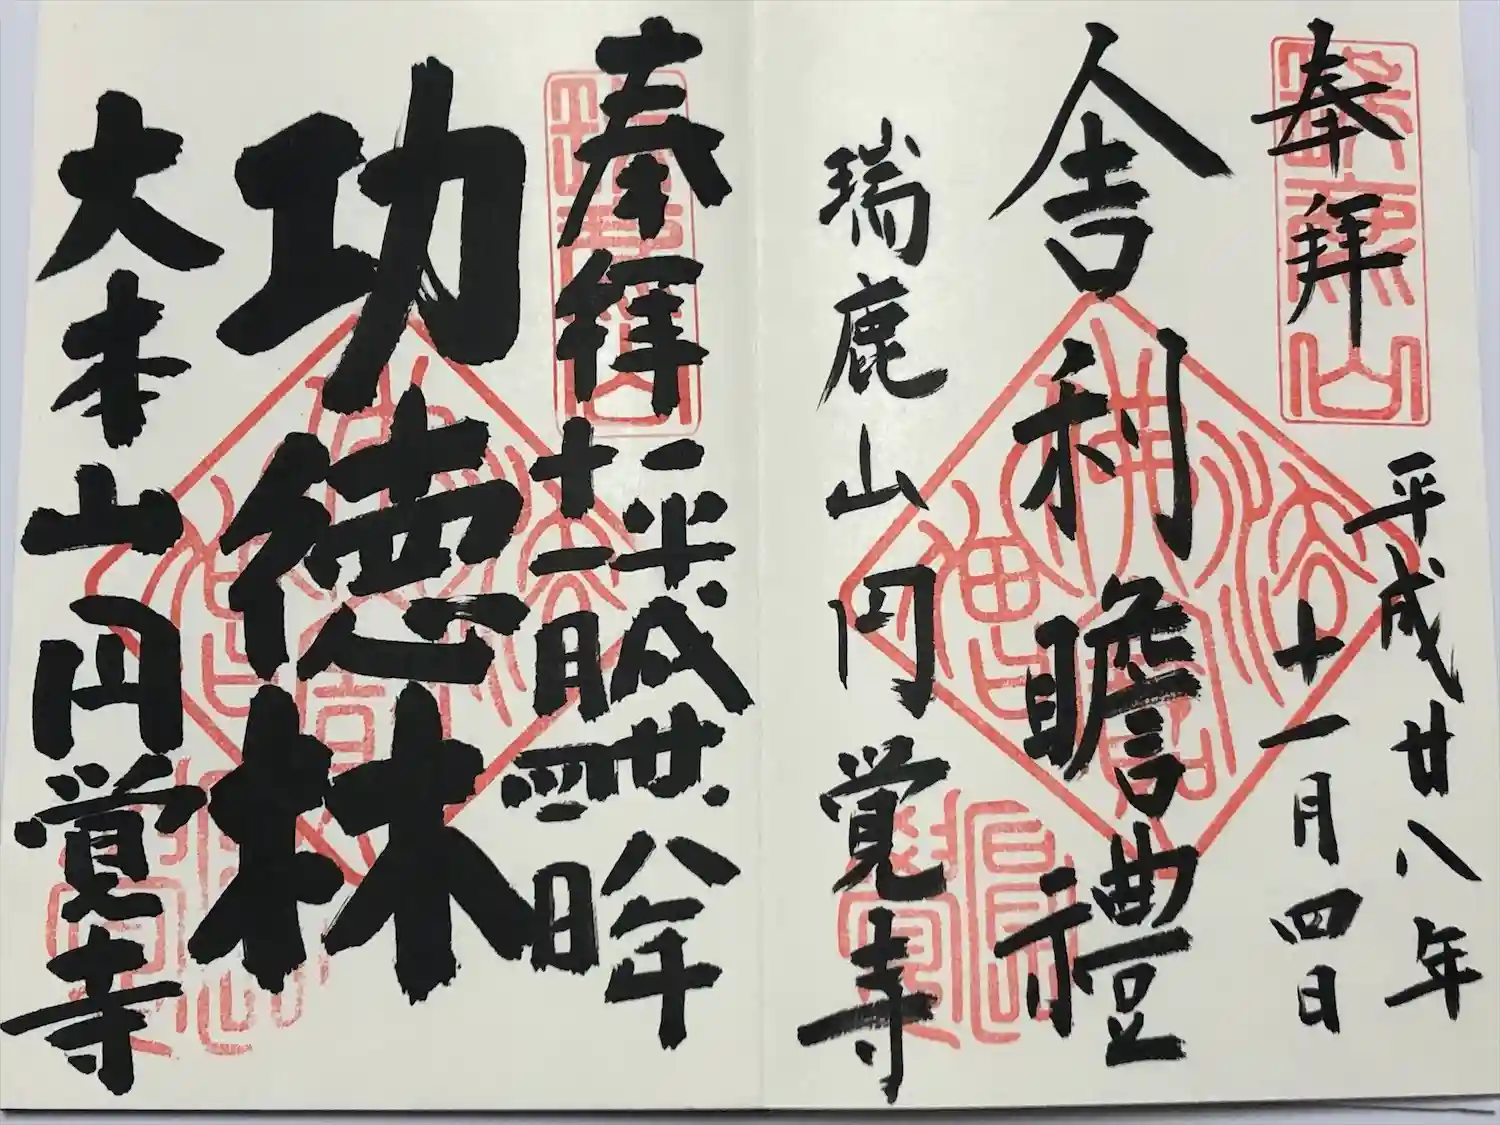 奉拝
平成廿八年
十一月四日
舎利瞻禮
瑞鹿山円覚寺
奉拝
平成廿八年
十一月四日
功徳林
大本山円覚寺
瑞鹿山
瑞鹿山